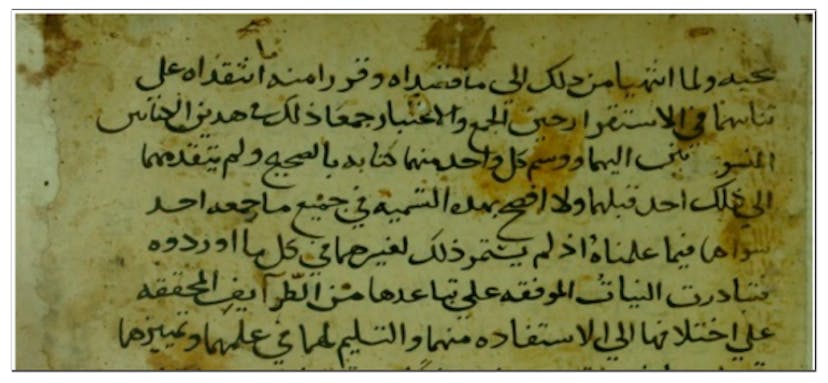 ولما انتهيا من ذلك الى ما قصداه وقررا منه ما انتقداه على
تناهيهما في الاستقرا حين الجمع والاختيار جمعا ذلك في هذين الكتابين
اليهما ووسم كل واحد منهما كتابه بالصحيح ولم يتقدمهما
الي ذلك احد قبلهما ولا افصح بهذه التسميه في جميع ما جمعه احد
سواهما فيما علمناهُ اذ لم يستمر ذلك لغيرهما في كل ما اوردوه
فتبادرت النياتُ الموفقه على تباعدها من الطوايف المحققه
علي اختلافها الي الاستفاده منهما والتسليم لهما في علمهما وتمييزهما